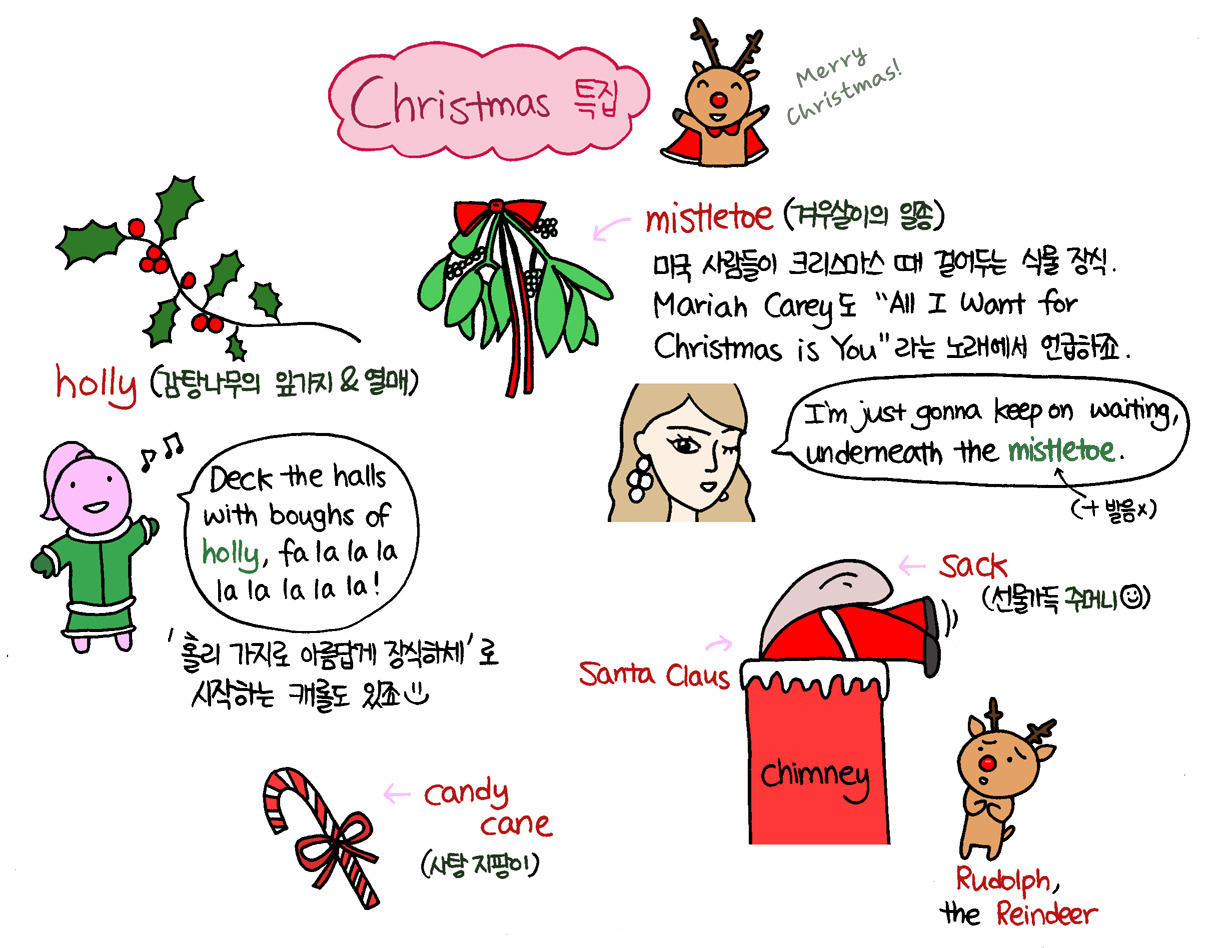 Christmas 특집
Merry
Christmas!
mistletoe (겨우살이의 일종)
미국 사람들이 크리스마스 때 걸어두는 식물 장식.
Mariah Carey도 "All I Want for
Christmas is You"라는 노래에서 언급하죠.
holly (감탕나무의 잎가지 & 열매)
I'm just gonna keep on waiting,
underneath the mistletoe.
(t 발음x)
Deck the halls
with boughs of
holly, fa la la la
la la la la la!
'홀리 가지로 아름답게 장식하세'로
시작하는 캐롤도 있죠
sack
(선물가득 주머니)
Santa Claus
chimney
candy
cane
(사탕 지팡이)
Rudolph,
the Reindeer